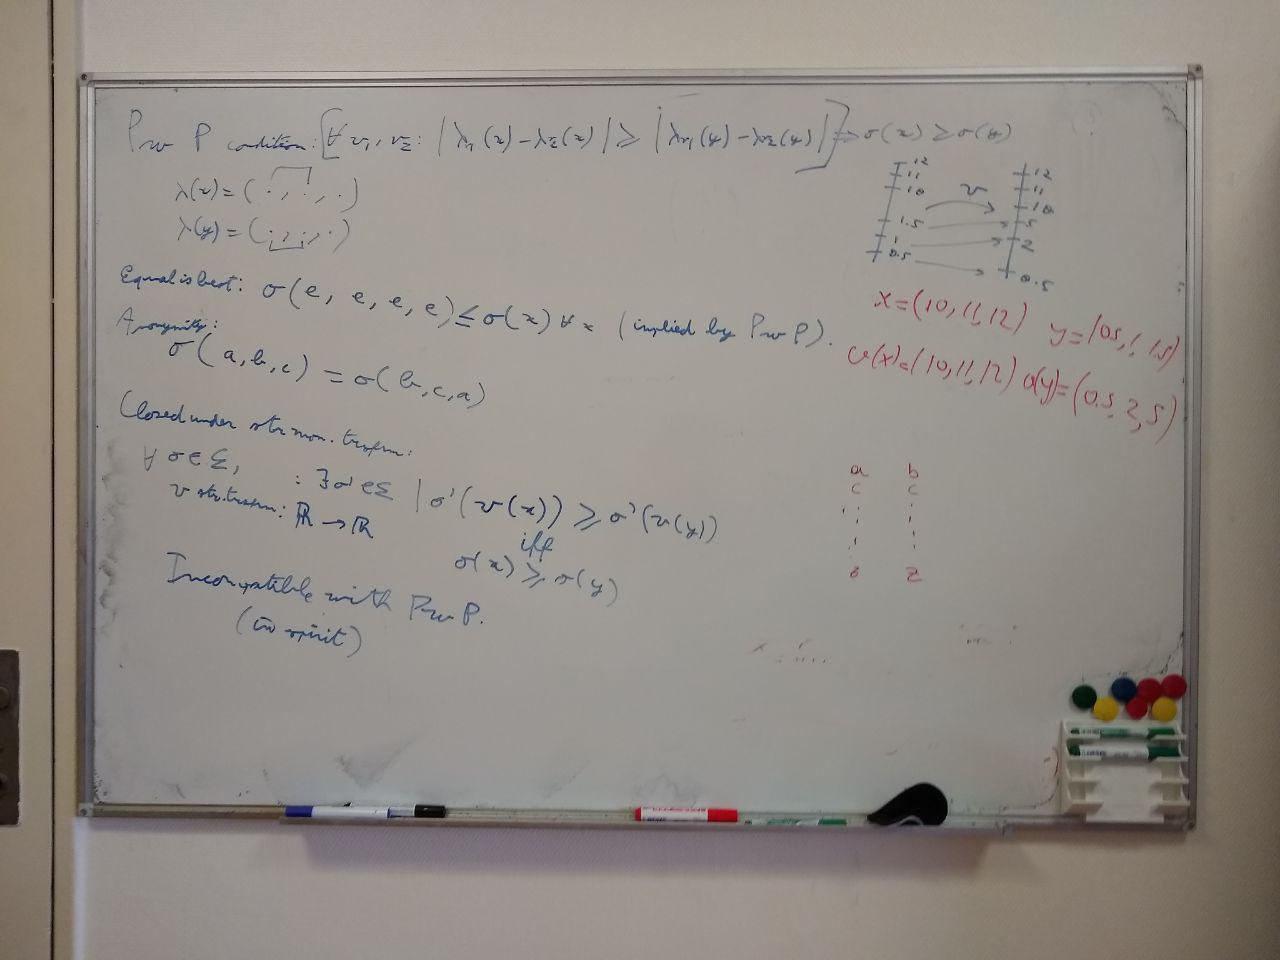 Pw P condition: [∀ v₁, v₂: | λv₁(x) - λv₂(x) | ≥ | λv₁(y) - λv₂(y) |] ⇒ σ(x) ≥ σ(y)
λ(x) = ( . , . , . )
λ(y) = ( . , . , . )
Equal is best: σ(e, e, e, e) ≤ σ(x) ∀ x (implied by Pw P).
Anonymity:
σ(a, b, c) = σ(b, c, a)
Closed under str mon. trsfm:
∀ σ ∈ Σ,
v str. trsfm: ℝ → ℝ
: ∃ σ' ∈ Σ | σ'(v(x)) ≥ σ'(v(y))
iff
σ(x) ≥ σ(y)
Incompatible with Pw P.
(in spirit)
12
11
10
1.5
1
0.5
v
12
11
10
5
2
0.5
x = (10, 11, 12) y = (0.5, 1, 1.5)
v(x) = (10, 11, 12) v(y) = (0.5, 2, 5)
a b
c c
z